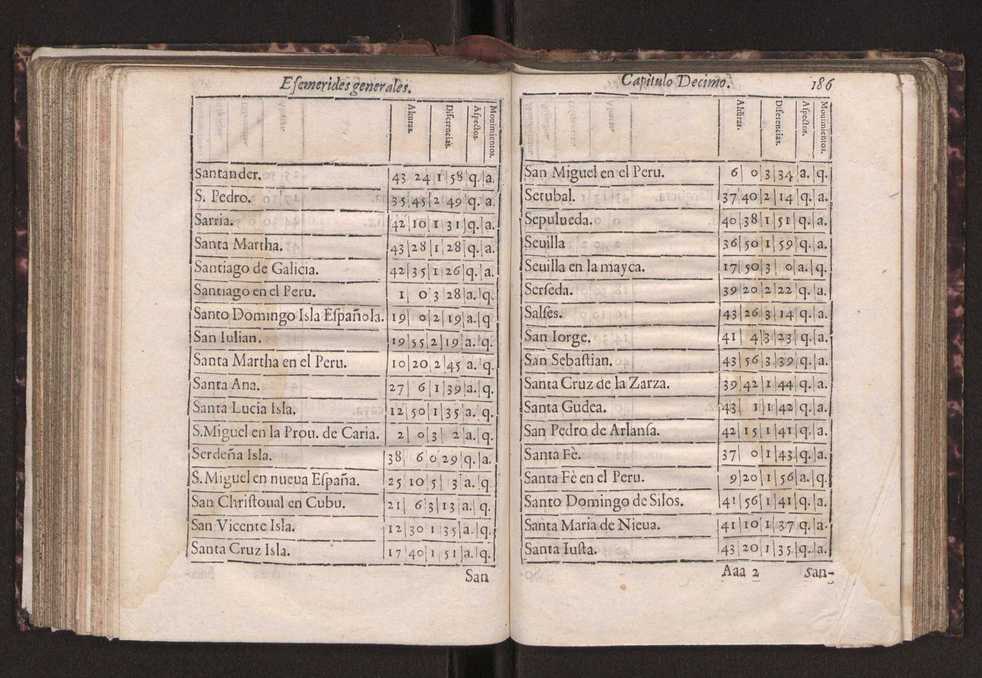 Efemerides generales.
Alturas. Diferencias. Aspectos. Mouimientos.
Santander. 43 24 1 58 q. a.
S. Pedro. 35 45 2 49 q. a.
Sarria. 42 10 1 31 q. a.
Santa Martha. 43 28 1 28 q. a.
Santiago de Galicia. 42 35 1 26 q. a.
Santiago en el Peru. 1 0 3 28 a. q.
Santo Domingo Isla Española. 19 0 2 19 a. q
San Iulian. 19 55 2 19 a. q.
Santa Martha en el Peru. 10 20 2 45 a. q.
Santa Ana. 27 6 1 39 a. q.
Santa Lucia Isla. 12 50 1 35 a. q.
S. Miguel en la Prou. de Caria. 2 0 3 2 a. q.
Serdeña Isla. 38 6 0 29 q. a.
S. Miguel en nueua España. 25 10 5 3 a. q.
San Christoual en Cubu. 21 6 3 13 a. q.
San Vicente Isla. 12 30 1 35 a. q.
Santa Cruz Isla. 17 40 1 51 a. q.
San
Capitulo Decimo. 186
Alturas. Diferencias. Aspectos. Mouimientos.
San Miguel en el Peru. 6 0 3 34 a. q.
Setubal. 37 40 2 14 q. a.
Sepulueda. 40 38 1 51 q. a.
Seuilla 36 50 1 59 q. a.
Seuilla en la mayca. 17 50 3 0 a. q.
Serseda. 39 20 2 22 q. a.
Salses. 43 26 3 14 q. a.
San Iorge. 41 4 3 23 q. a.
San Sebastian. 43 56 3 39 q. a.
Santa Cruz de la Zarza. 39 42 1 44 q. a.
Santa Gudea. 43 1 1 42 q. a.
San Pedro de Arlansa. 42 15 1 41 q. a.
Santa Fè. 37 0 1 43 q. a.
Santa Fè en el Peru. 9 20 1 56 a. q.
Santo Domingo de Silos. 41 56 1 41 q. a.
Santa Maria de Nieua. 41 10 1 37 q. a.
Santa Iusta. 43 20 1 35 q. a.
Aaa 2 San-